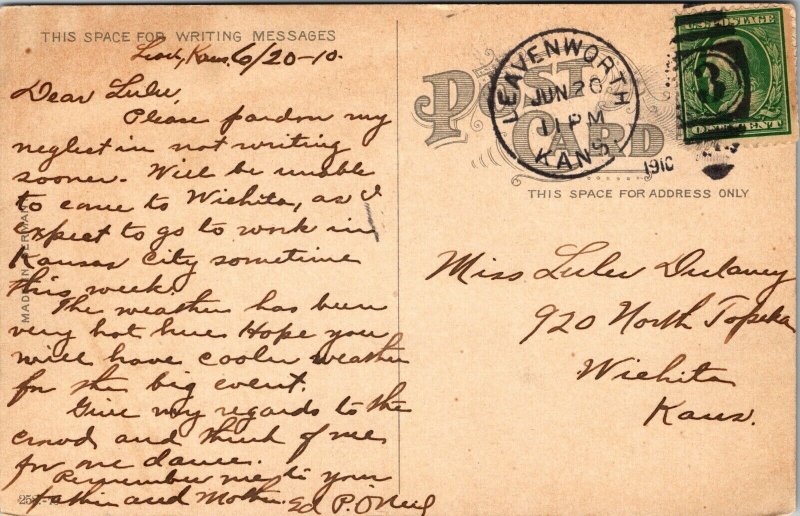 THIS SPACE FOR WRITING MESSAGES
Leav, Kans, 6/20-10.
Dear Lulu,
Please pardon my
neglect in not writing
sooner. Will be unable
to come to Wichita, as I
expect to go to work in
Kansas City sometime
this week.
The weather has been
very hot here Hope you
will have cooler weather
for the big event.
Give my regards to the
crowd and think of me
for one dance.
Remember me to your
father and Mother. Ed P. O'Neil
MADE IN GERMANY
POST
CARD
THIS SPACE FOR ADDRESS ONLY
LEAVENWORTH
JUN 20
11 PM
KANS.
1910
U.S. POSTAGE
3
ONE CENT
Miss Lulu Dulaney
920 North Topeka
Wichita
Kans.